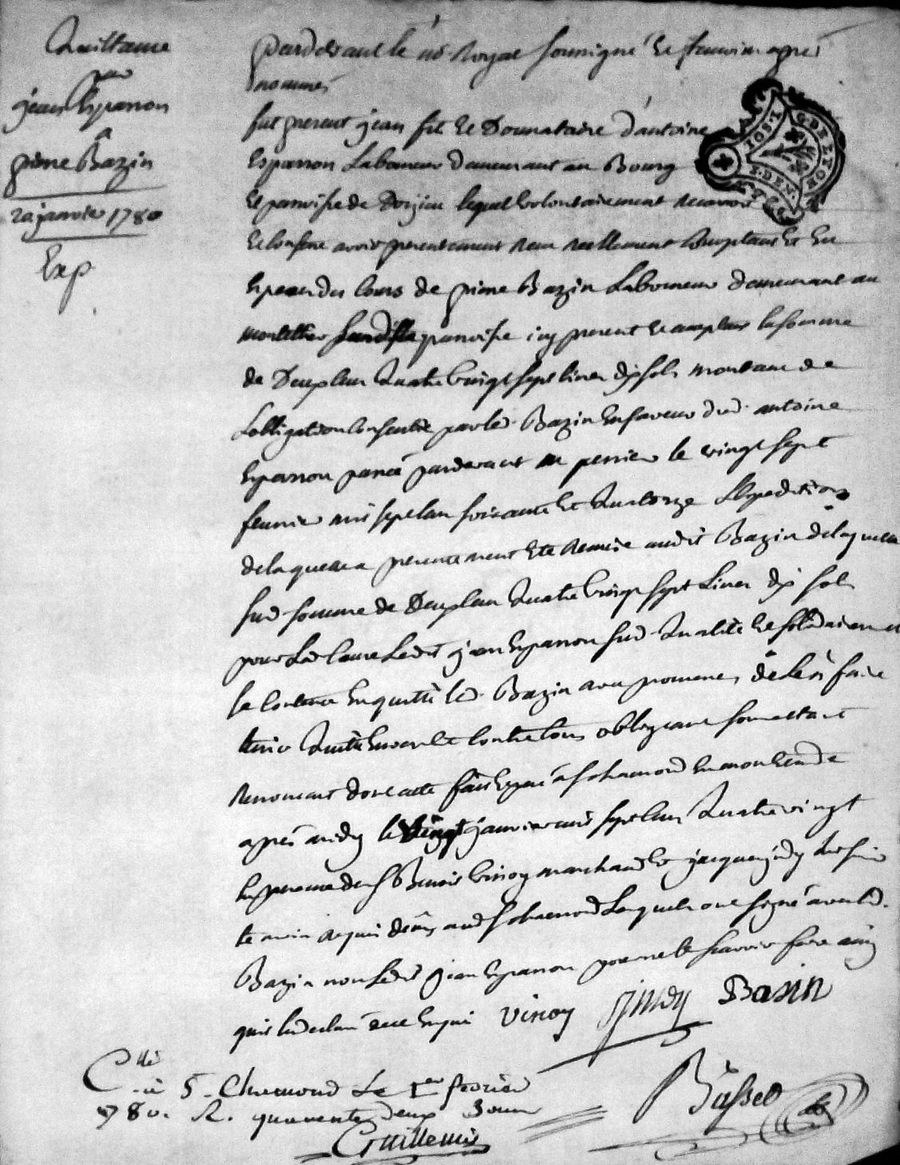 Quittance
par
jean Esparron
a
pierre Bazin
20 janvier 1780
Exp
pardevant le no. Royal soussigné et temoins après
nommés
fut present jean fils et Donnataire d'antoine
Esparron Laboureur demeurant au Bourg
et parroisse de lequel volontairement
et confesse avoir presentement receu reellement comptant et en
especes du cours de pierre Bazin Laboureur demeurant au
parroisse icy present et acceptant la somme
de Deux cen quatre vingt sept livres dix sols montant de
l'obligation consentie par led. Bazin en faveur dud. antoine
Esparron passé pardevant me perrier le vingt sept
fevrier mil sept cen soixante et quatorze l'Expedition
de laquelle a presentement eté remise audit Bazin de laquelle
sud. somme de Deux cen quatre vingt sept Livres dix sols
pour lad. cause Ledit jean Esparron sud. qualité et solidairement
se contente en quitte led. Bazin avec promesse de l'en faire
tenir quitte envers et contre tous obligeant soumettant
renonceant dont acte fait et passé a St chamond en mon etude
après midy le vingt janvier mil sept cen quatre vingt
en presence de sr Benoit Vinoy marchand et jacques
temoin requis dem. aud. St chamond Lesquels ont signé avec led.
Bazin non ledit jean Esparron pour ne le scavoir faire ainsy
qu'il l'a declaré de ce enquis Vinoy Basin
Cllé
à St. Chamond Le 1er fevrier
1780. R. quarente deux sous
Guillemin